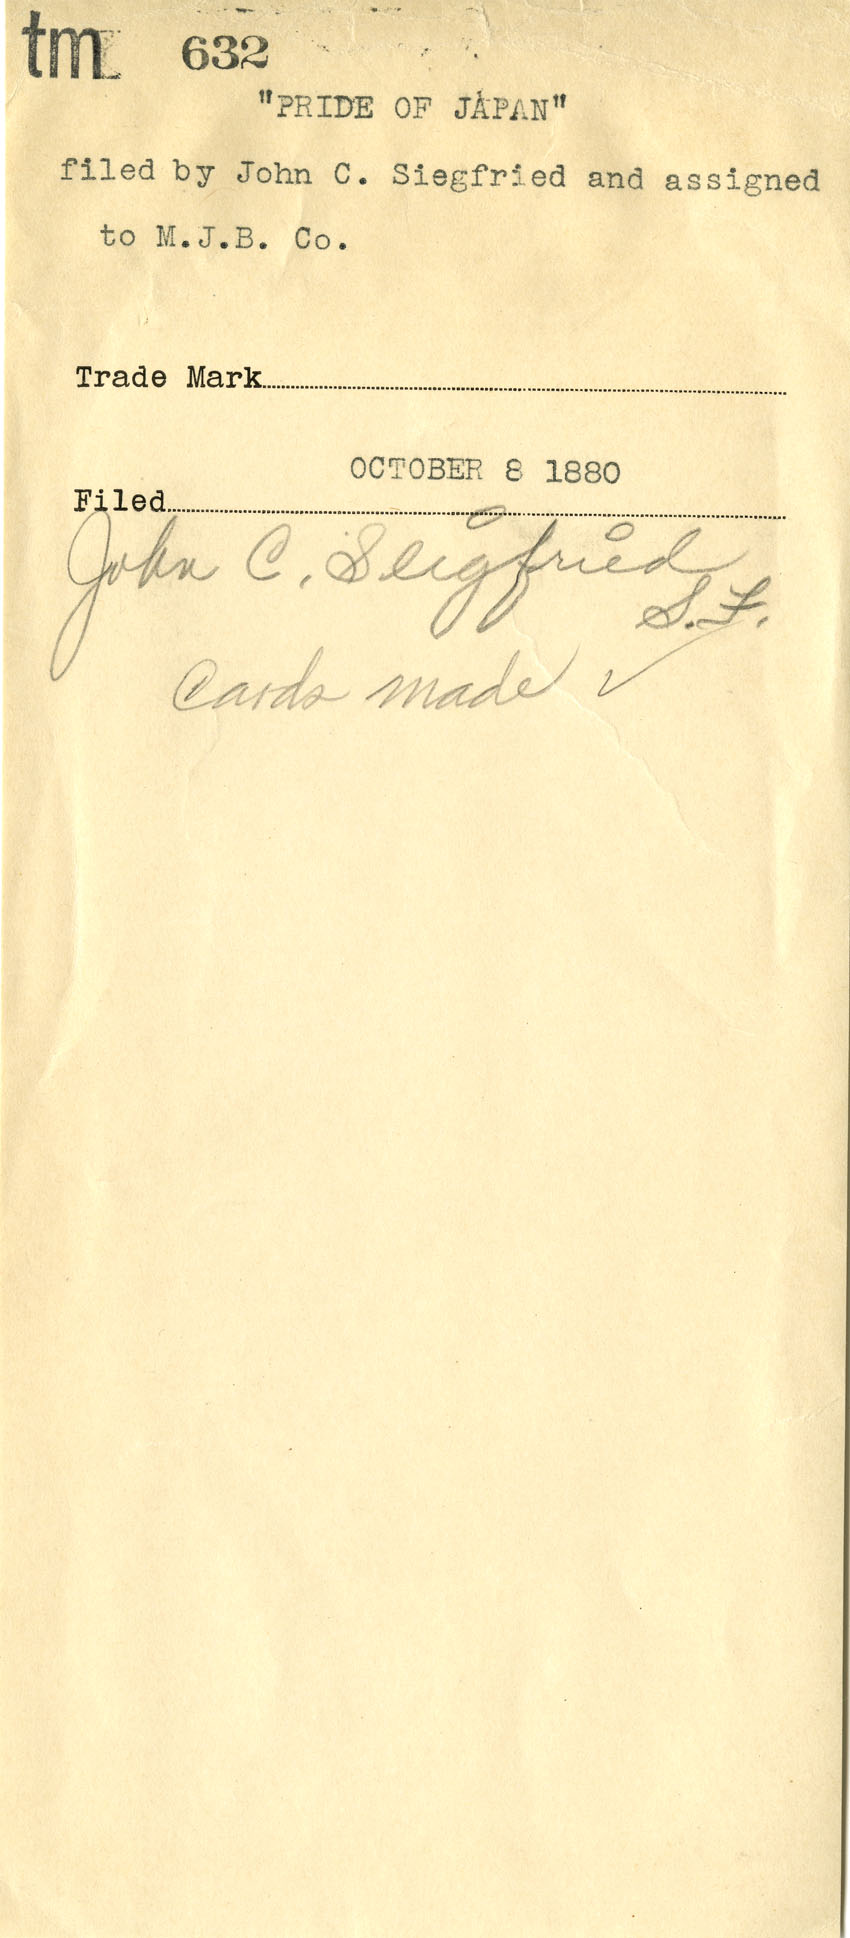 tm 632
"PRIDE OF JAPAN"
filed by John C. Siegfried and assigned
to M.J.B. Co.
Trade Mark
OCTOBER 8 1880
Filed
John C. Seigfried
S.F.
Cards made ✓